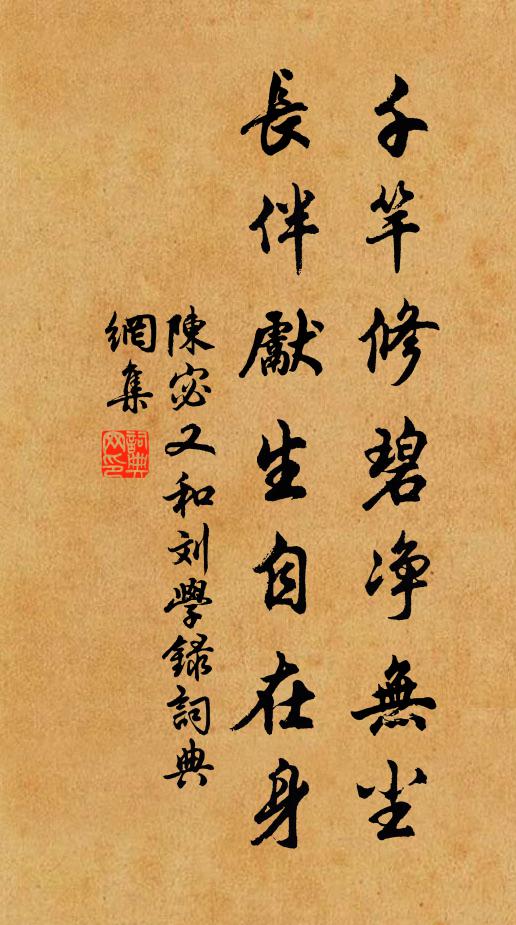 千竿修碧净無尘
長伴獻生自在身
陳宓又和刘學録詞典
網集
詞典
网印